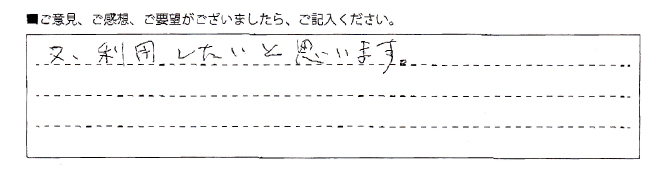 ■ご意見、ご感想、ご要望がございましたら、ご記入ください。
又、利用したいと思います。